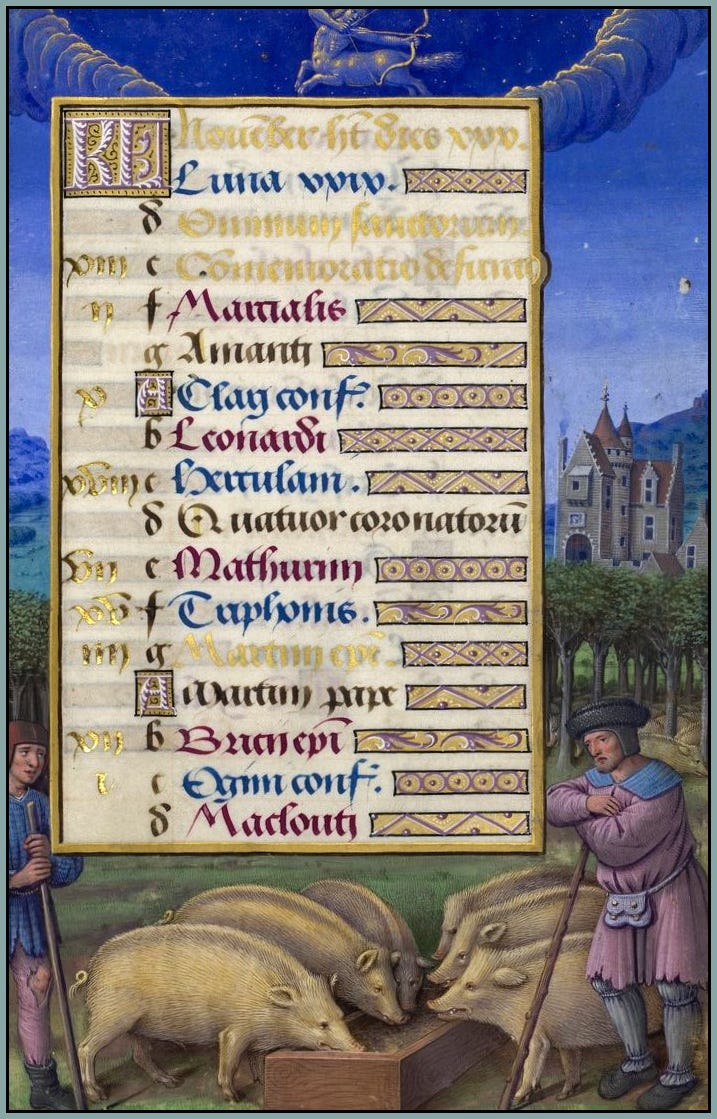 KL Nouēber hт̄ dies xxx.
Luna xxix.
d Omnium sanctorum.
xiii e Cōmemoratio defunct
ii f Marcialis
g Amantj
x A Clarj conf.
b Leonardi
xviii c Herculani.
d Quatuor coronatorū
vii e Mathurinj
xv f Triphonis.
iiij g Martinj epī.
A Martinj pape
xii b Bricij epī
i c Eginj conf.
d Macloutj